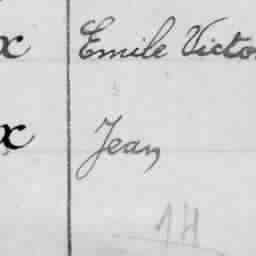 x Emile Victo
x Jean
1H